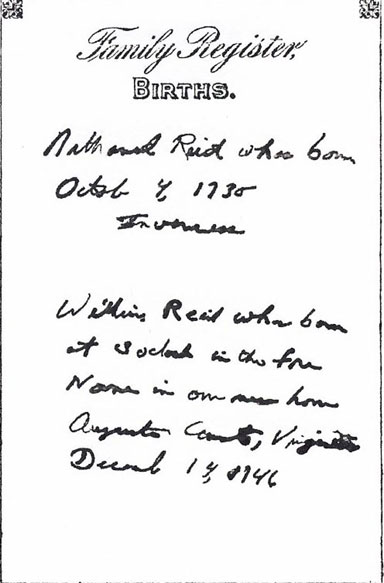 Family Register,
BIRTHS.
Nathanael Reid whas born
Octob 4, 1730
Inverness
William Reid whas born
at 3 oclock in the fore
Noone in our new home
Augusta County, Virginia
Decemb 14, 1746